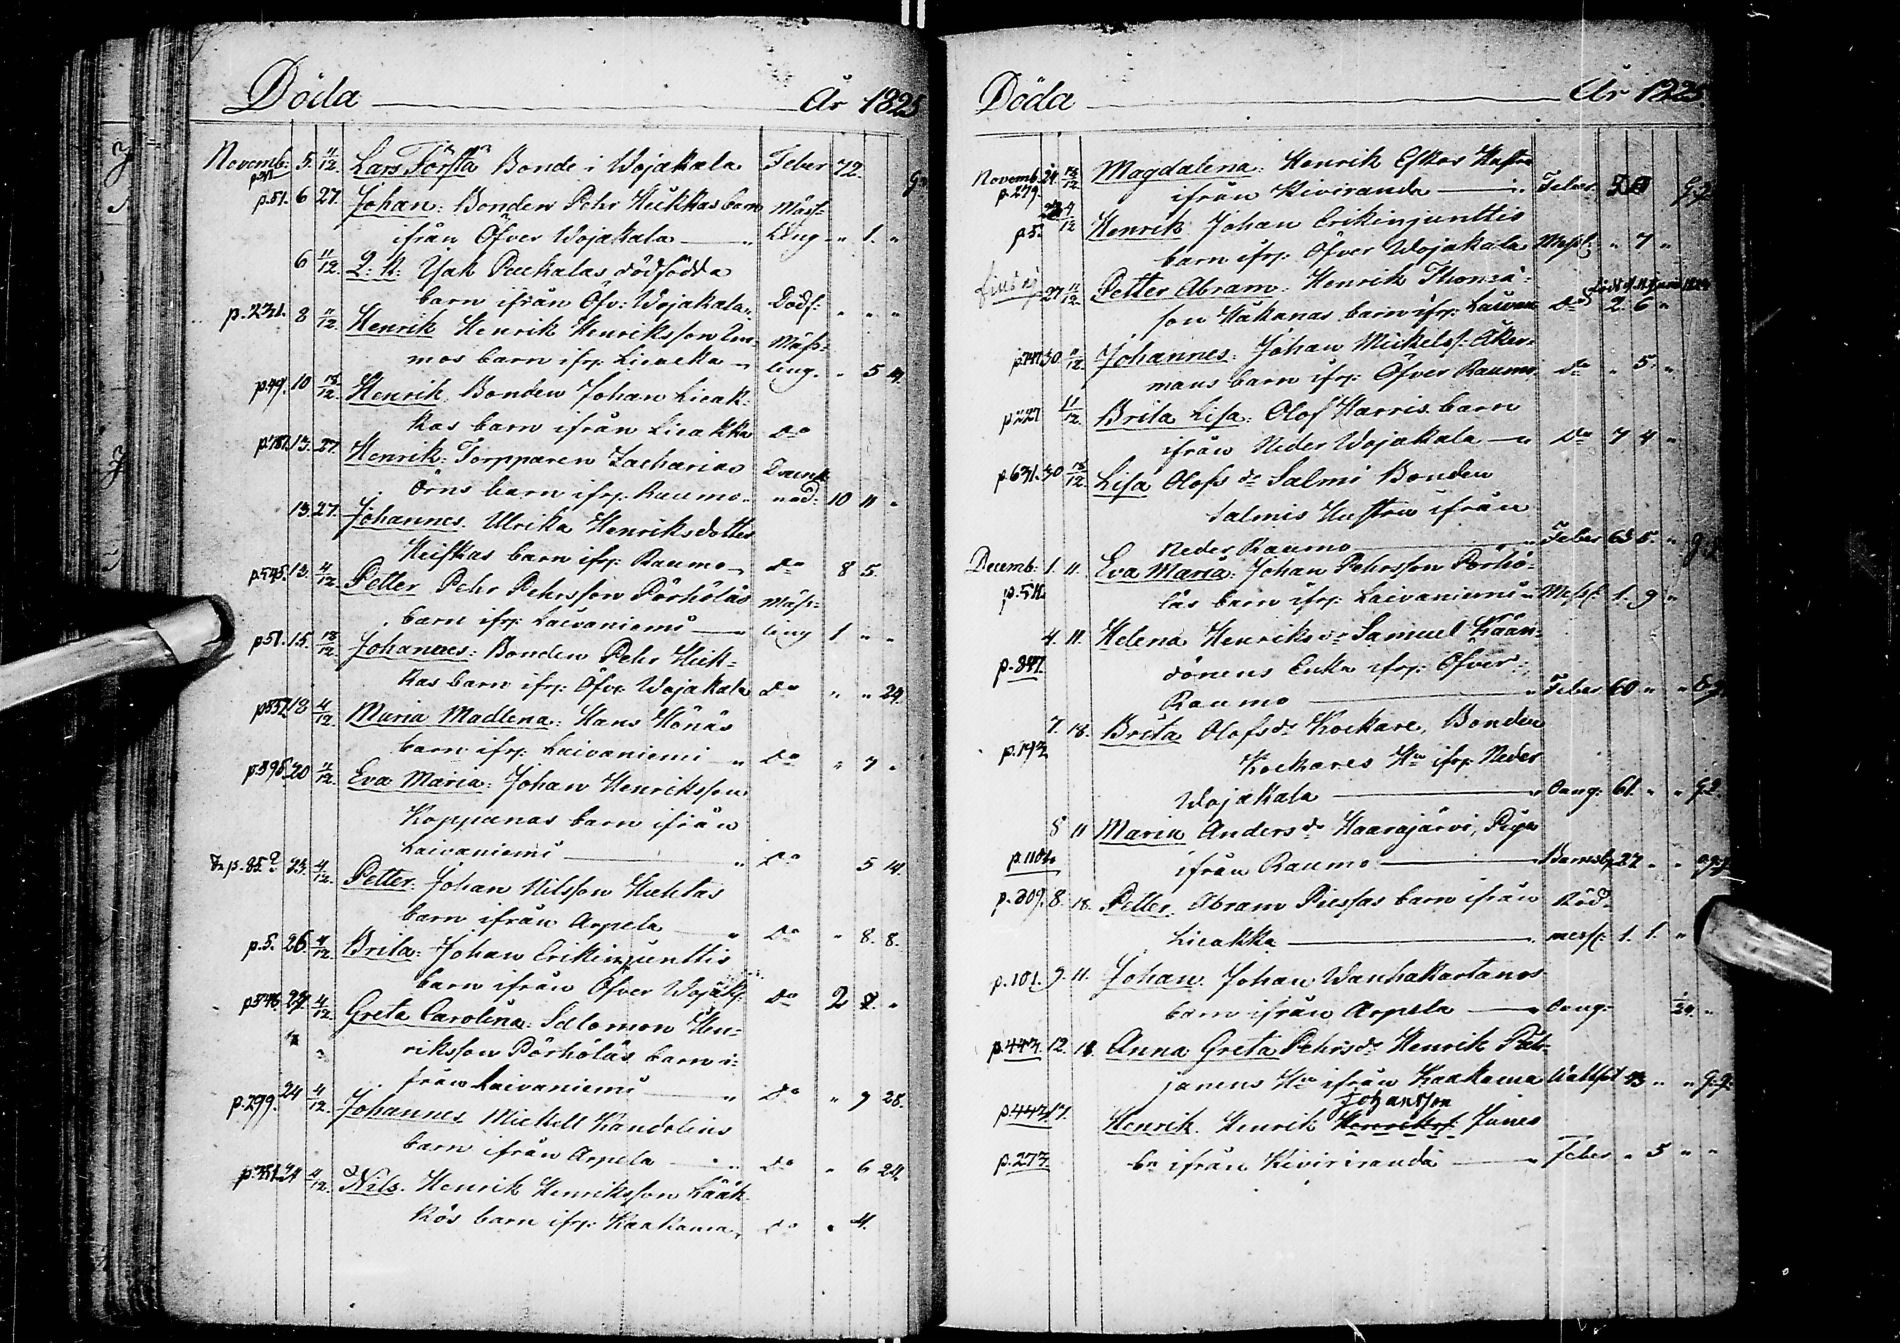 Döda År 1825
Novemb: 5. 4/12 Lars Förstä Bonde i Wojakala Feber 72
p.51. 6 27. Johan: Bonden Pehr Huikkas barn Mäss-
ifrån Öfver Wojakala ling " 1. "
6 11/12 Q: K: Isak Puukalas dödfödda
barn ifrån Öfv: Wojakala Dödf: " " "
p.231. 8 11/12 Henrik Henrik Henriksson
mos barn ifrn: Liedakka Mäss-
ling. " 5 4.
p.49. 10 18/12 Henrik. Bonden Johan Lieak-
kas barn ifrån Lieakka do
p.781. 13. 27. Henrik: Torpparen Zacharias Drunk-
Örns barn ifrn: Raumo. nad. 10 11 "
13. 27. Johannes. Ulrika Henriksdotter
Heiskas barn ifrn: Raumo do 8 5.
p.545. 13. 4/12 Petter Pehr Pehrsson Pörhöläs Mäss-
barn ifrn: Laivaniemi ling 1 " "
p.51. 15. 18/12 Johannes: Bonden Pehr Huik-
kas barn ifrn: Öfv: Wojakala do " " 24.
p.557. 18 4/12 Maria Madlena: Hans Hönäs
barn ifrn: Laivaniemi do " 7 "
p.595. 20 11/12 Eva Maria: Johan Henriksson
Koppanas barn ifrån
Laivaniemi do 5 14.
p.85 23. 4/12 Petter. Johan Nilsson Huhtas
barn ifrån Arpela do " 8. 8.
p.5. 26 4/12 Brita: Johan Erikinjunttis
barn ifrån Öfver Wojak: do 2 8. "
p.546. 24 4/12 Greta Carolina: Salomon Hen-
riksson Pörhöläs barn i-
från Laivaniemi do " 9 28.
p.299. 24 4/12 Johannes. Mickell Kandolens
barn ifrån Arpela do " 6 24
24 4/12 Nils. Henrik Henriksson Lääk-
kös barn ifrn: Kaakama, do " 4.
Döda År 1825
Novemb. 24 18/12 Magdalena: Henrik Hustru
p.279 ifrån Kiviranda Feber G.g.
p.5. 4/12 Henrik Johan Erikinjunttis
barn ifrn: Öfver Wojakala Mässl: " 7 "
27 11/12 Petter Abram. Henrik Thomas-
son Hakanas barn ifrn: do 2. 6 "
p.747. 30. 11/12 Johannes: Johan Mickelss: Åker-
mans barn ifrn: Öfver Raumo do " 5. "
p.227 11/12 Brita Lisa: Olof Harris barn
ifrån Neder Wojakala do 7 4 "
p.631. 30 18/12 Lisa Olofs dr Salmi Bonden
Salmis Hustru ifrån
Neder Raumo Feber 63 5. "
Decemb. 1. 11. Eva Maria: Johan Pehrsson Pörhö-
p.511. läs barn ifrn: Laivaniemi Mässl: 1. 9 "
4. 11. Helena Henriks dr Samuel Kään-
p.847. dönens Enka ifrn: Öfver-
Raumo Feber 60 " "
7. 18. Brita Olofs dr Kockare, Bonden
p.193 Kockares Hu ifrn: Neder
Wojakala 61. " " G.g.
8 11 Maria Anders dr Haarajärvi, Piga
p.1101 ifrån Raumo Barnsb: 27 " "
p.209. 8. 18. Petter. Abram Piessas barn ifrån Röd-
Lieakka mässl: 1. 1. "
p.101. 9. 11. Johan. Johan Wanhakartanos
barn ifrån Arpela 1/24. "
p.443. 12. 18 Anna Greta Pehrs dr Henrik
janens Hu ifrån Kaakama Wattsot 73 " " G.g.
Johansson
p.443 17. Henrik. Henrik Henrikss: Junes
p.273 bn ifrån Kiviriranda Feber " 5 " "